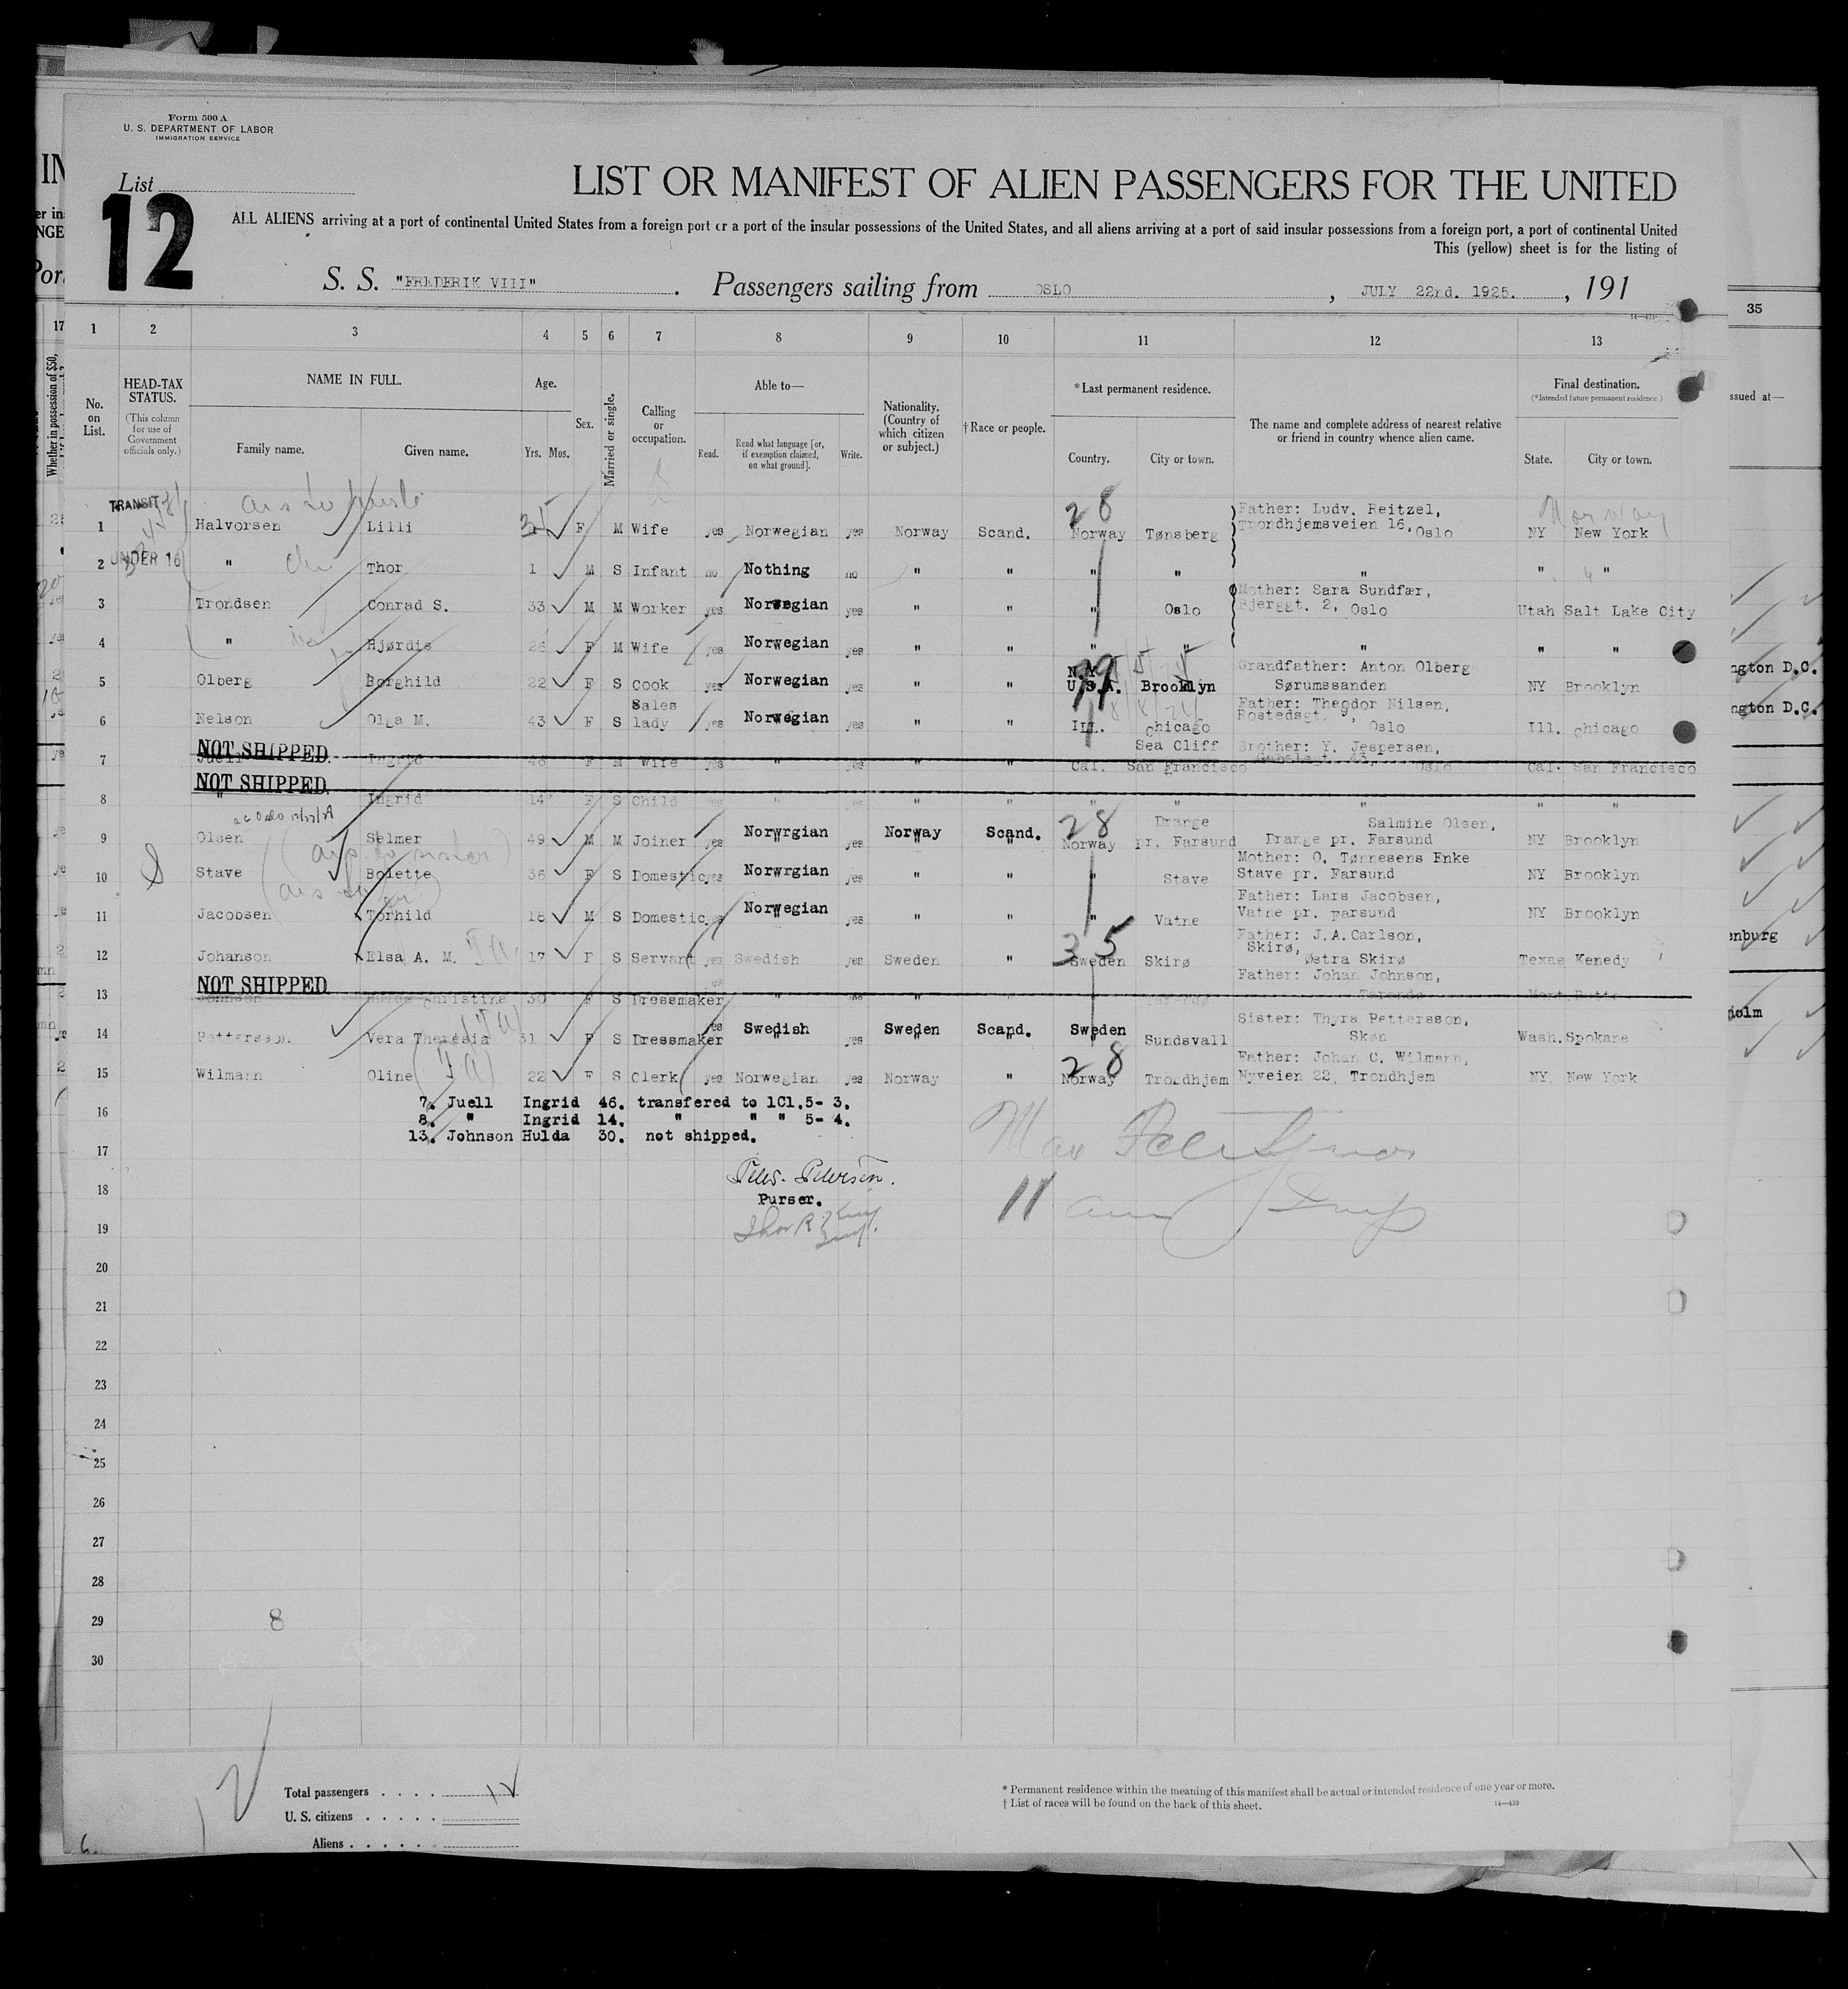 Form 500 A
U. S. DEPARTMENT OF LABOR
IMMIGRATION SERVICE
List
12
LIST OR MANIFEST OF ALIEN PASSENGERS FOR THE UNITED
ALL ALIENS arriving at a port of continental United States from a foreign port or a port of the insular possessions of the United States, and all aliens arriving at a port of said insular possessions from a foreign port, a port of continental United
This (yellow) sheet is for the listing of
S. S. "FREDERIK VIII" . Passengers sailing from OSLO , JULY 22nd. 1925. , 191
1 2 3 4 5 6 7 8 9 10 11 12 13
No. on List.
HEAD-TAX STATUS.
(This column for use of Government officials only.)
NAME IN FULL.
Family name. Given name.
Age.
Yrs. Mos.
Sex.
Married or single.
Calling or occupation.
Able to—
Read. Read what language [or, if exemption claimed, on what ground]. Write.
Nationality. (Country of which citizen or subject.)
†Race or people.
*Last permanent residence.
Country. City or town.
The name and complete address of nearest relative or friend in country whence alien came.
Final destination.
(*Intended future permanent residence.)
State. City or town.
TRANSIT
1 Halvorsen Lilli 35 F M Wife yes Norwegian yes Norway Scand. 28 Norway Tønsberg Father: Ludv. Reitzel, Trondhjemsveien 16, Oslo NY New York Norway
UNDER 16
2 " Thor 1 M S Infant no Nothing no " " " " " " "
3 Trondsen Conrad S. 33 M M Worker yes Norwegian yes " " " Oslo Mother: Sara Sundfær, Bjerggt. 2, Oslo Utah Salt Lake City
4 " Hjørdis 26 F M Wife yes Norwegian yes " " " " " " "
5 Olberg Borghild 22 F S Cook yes Norwegian yes " " N.Y. U.S.A. Brooklyn Grandfather: Anton Olberg Sørumssanden NY Brooklyn
6 Nelson Olga M. 43 F S Sales lady yes Norwegian yes " " Ill. Chicago Father: Theodor Nilsen, Rostedsgt. 9, Oslo Ill. Chicago
NOT SHIPPED
7 Juell Ingrid 46 F M Wife yes " yes " " Cal. Sea Cliff San Francisco Brother: Y. Jespersen, Gabelsgt. 43, Oslo Cal. San Francisco
NOT SHIPPED
8 " Ingrid 14 F S Child yes " yes " " " " " " "
9 Olsen Selmer 49 M M Joiner yes Norwrgian yes Norway Scand. 28 Norway Drange pr. Farsund Salmine Olsen, Drange pr. Farsund NY Brooklyn
10 Stave Bolette 36 F S Domestic yes Norwrgian yes " " " Stave Mother: O. Tønnesens Enke Stave pr. Farsund NY Brooklyn
11 Jacobsen Torhild 18 M S Domestic yes Norwegian yes " " " Vatne Father: Lars Jacobsen, Vatne pr. Farsund NY Brooklyn
12 Johanson Elsa A. M. 17 F S Servant yes Swedish yes Sweden " 35 Sweden Skirø Father: J.A.Carlson, Skirø, Østra Skirø Texas Kenedy
NOT SHIPPED
13 Johnson Hulda Christina 30 F S Dressmaker yes " yes " " " Father: Johan Johnson, Mont. Butte
14 Pettersson. Vera Theresia 31 F S Dressmaker yes Swedish yes Sweden Scand. Sweden Sundsvall Sister: Thyra Pettersson, Skøn Wash. Spokane
15 Wilmann Oline 22 F S Clerk yes Norwegian yes Norway " 28 Norway Trondhjem Father: Johan C. Wilmann, Nyveien 22, Trondhjem NY. New York
7. Juell Ingrid 46. transfered to 1Cl.5- 3.
16
8. " Ingrid 14. " " " 5- 4.
13. Johnson Hulda 30. not shipped.
17
Peter Petersen.
18
Purser.
11
19
20
21
22
23
24
25
26
27
28
29
8
30
Total passengers . . . . 12
U. S. citizens . . . . .
Aliens . . . . . .
* Permanent residence within the meaning of this manifest shall be actual or intended residence of one year or more.
† List of races will be found on the back of this sheet.
14—430
35
ssued at—
ngton D.C.
ngton D.C.
enburg
holm
17
Whether in possession of $50,